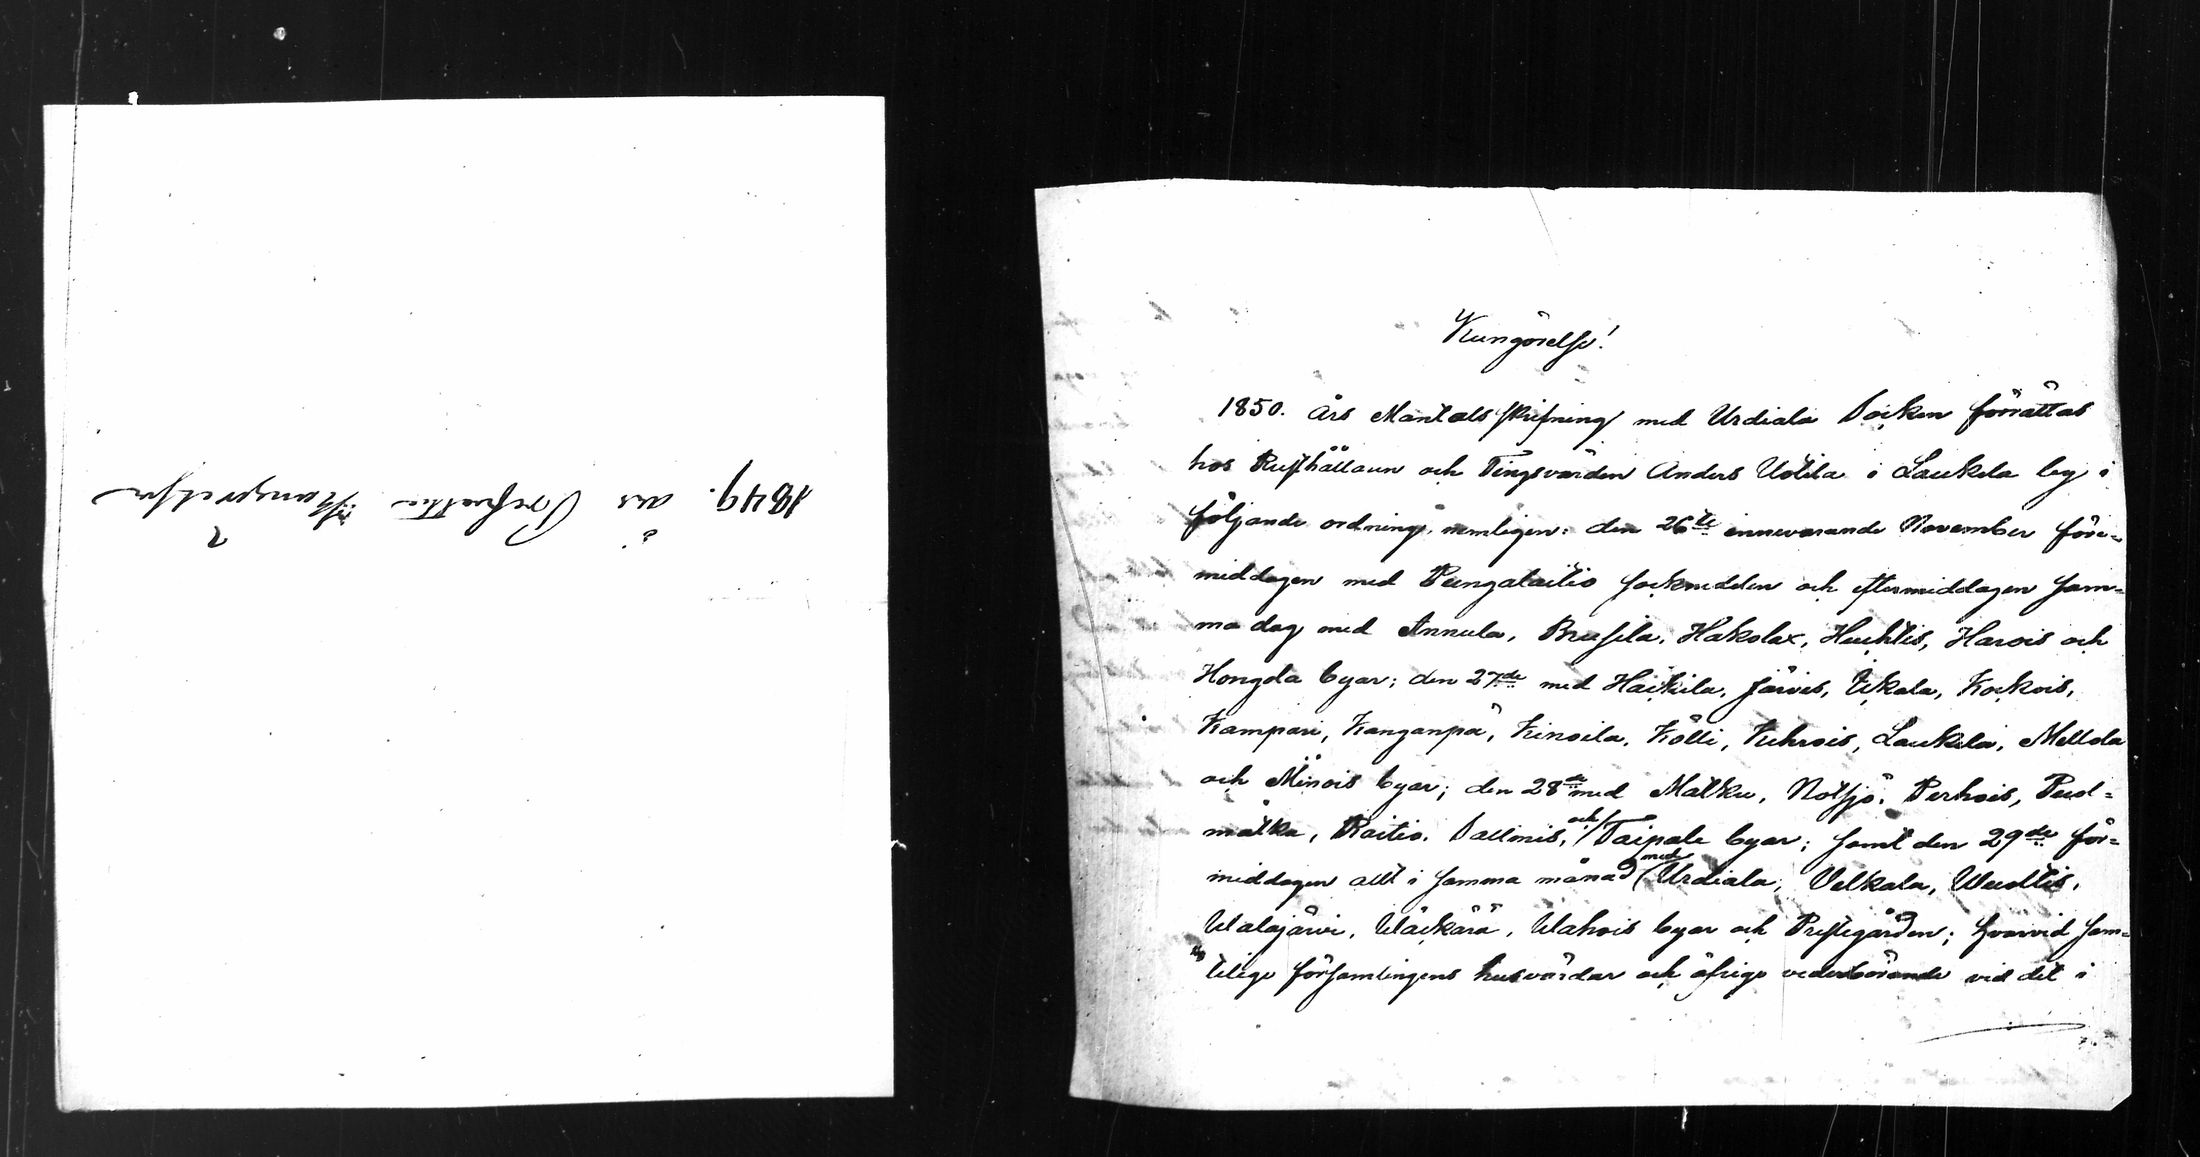 1849. års
Kungörelse!
1850. års Mantalsskrifning med Urdiala Socken förrättas
hos Rusthållaren och Tingsvärden Anders Uotila i Laukela by i
följande ordning, nemligen: den 26te innevarande November före-
middagen med Pungalaitio socknedelen och eftermiddagen sam-
ma dag med Annula, Brusila, Hakolax, Huhtis, Harois och
Hongola byar; den 27de med Haikila, Järvis, Ickala, Kockois,
Kampari, Kanganpä, Kinoila, Kölli, Kuhrois, Laukela, Mellola
och Minois byar; den 28de med Matku, Notsjö, Perhois, Puol-
matka, Raitio, Sallinis, och Taipale byar; samt den 29de för-
middagen allt i samma månad med Urdiala, Velkala, Wuoltis,
Walajärvi, Wäckärä, Wahois byar och Prestegården; hvarvid sam-
telige församlingens husvärdar och öfrige vederbörande vid det i